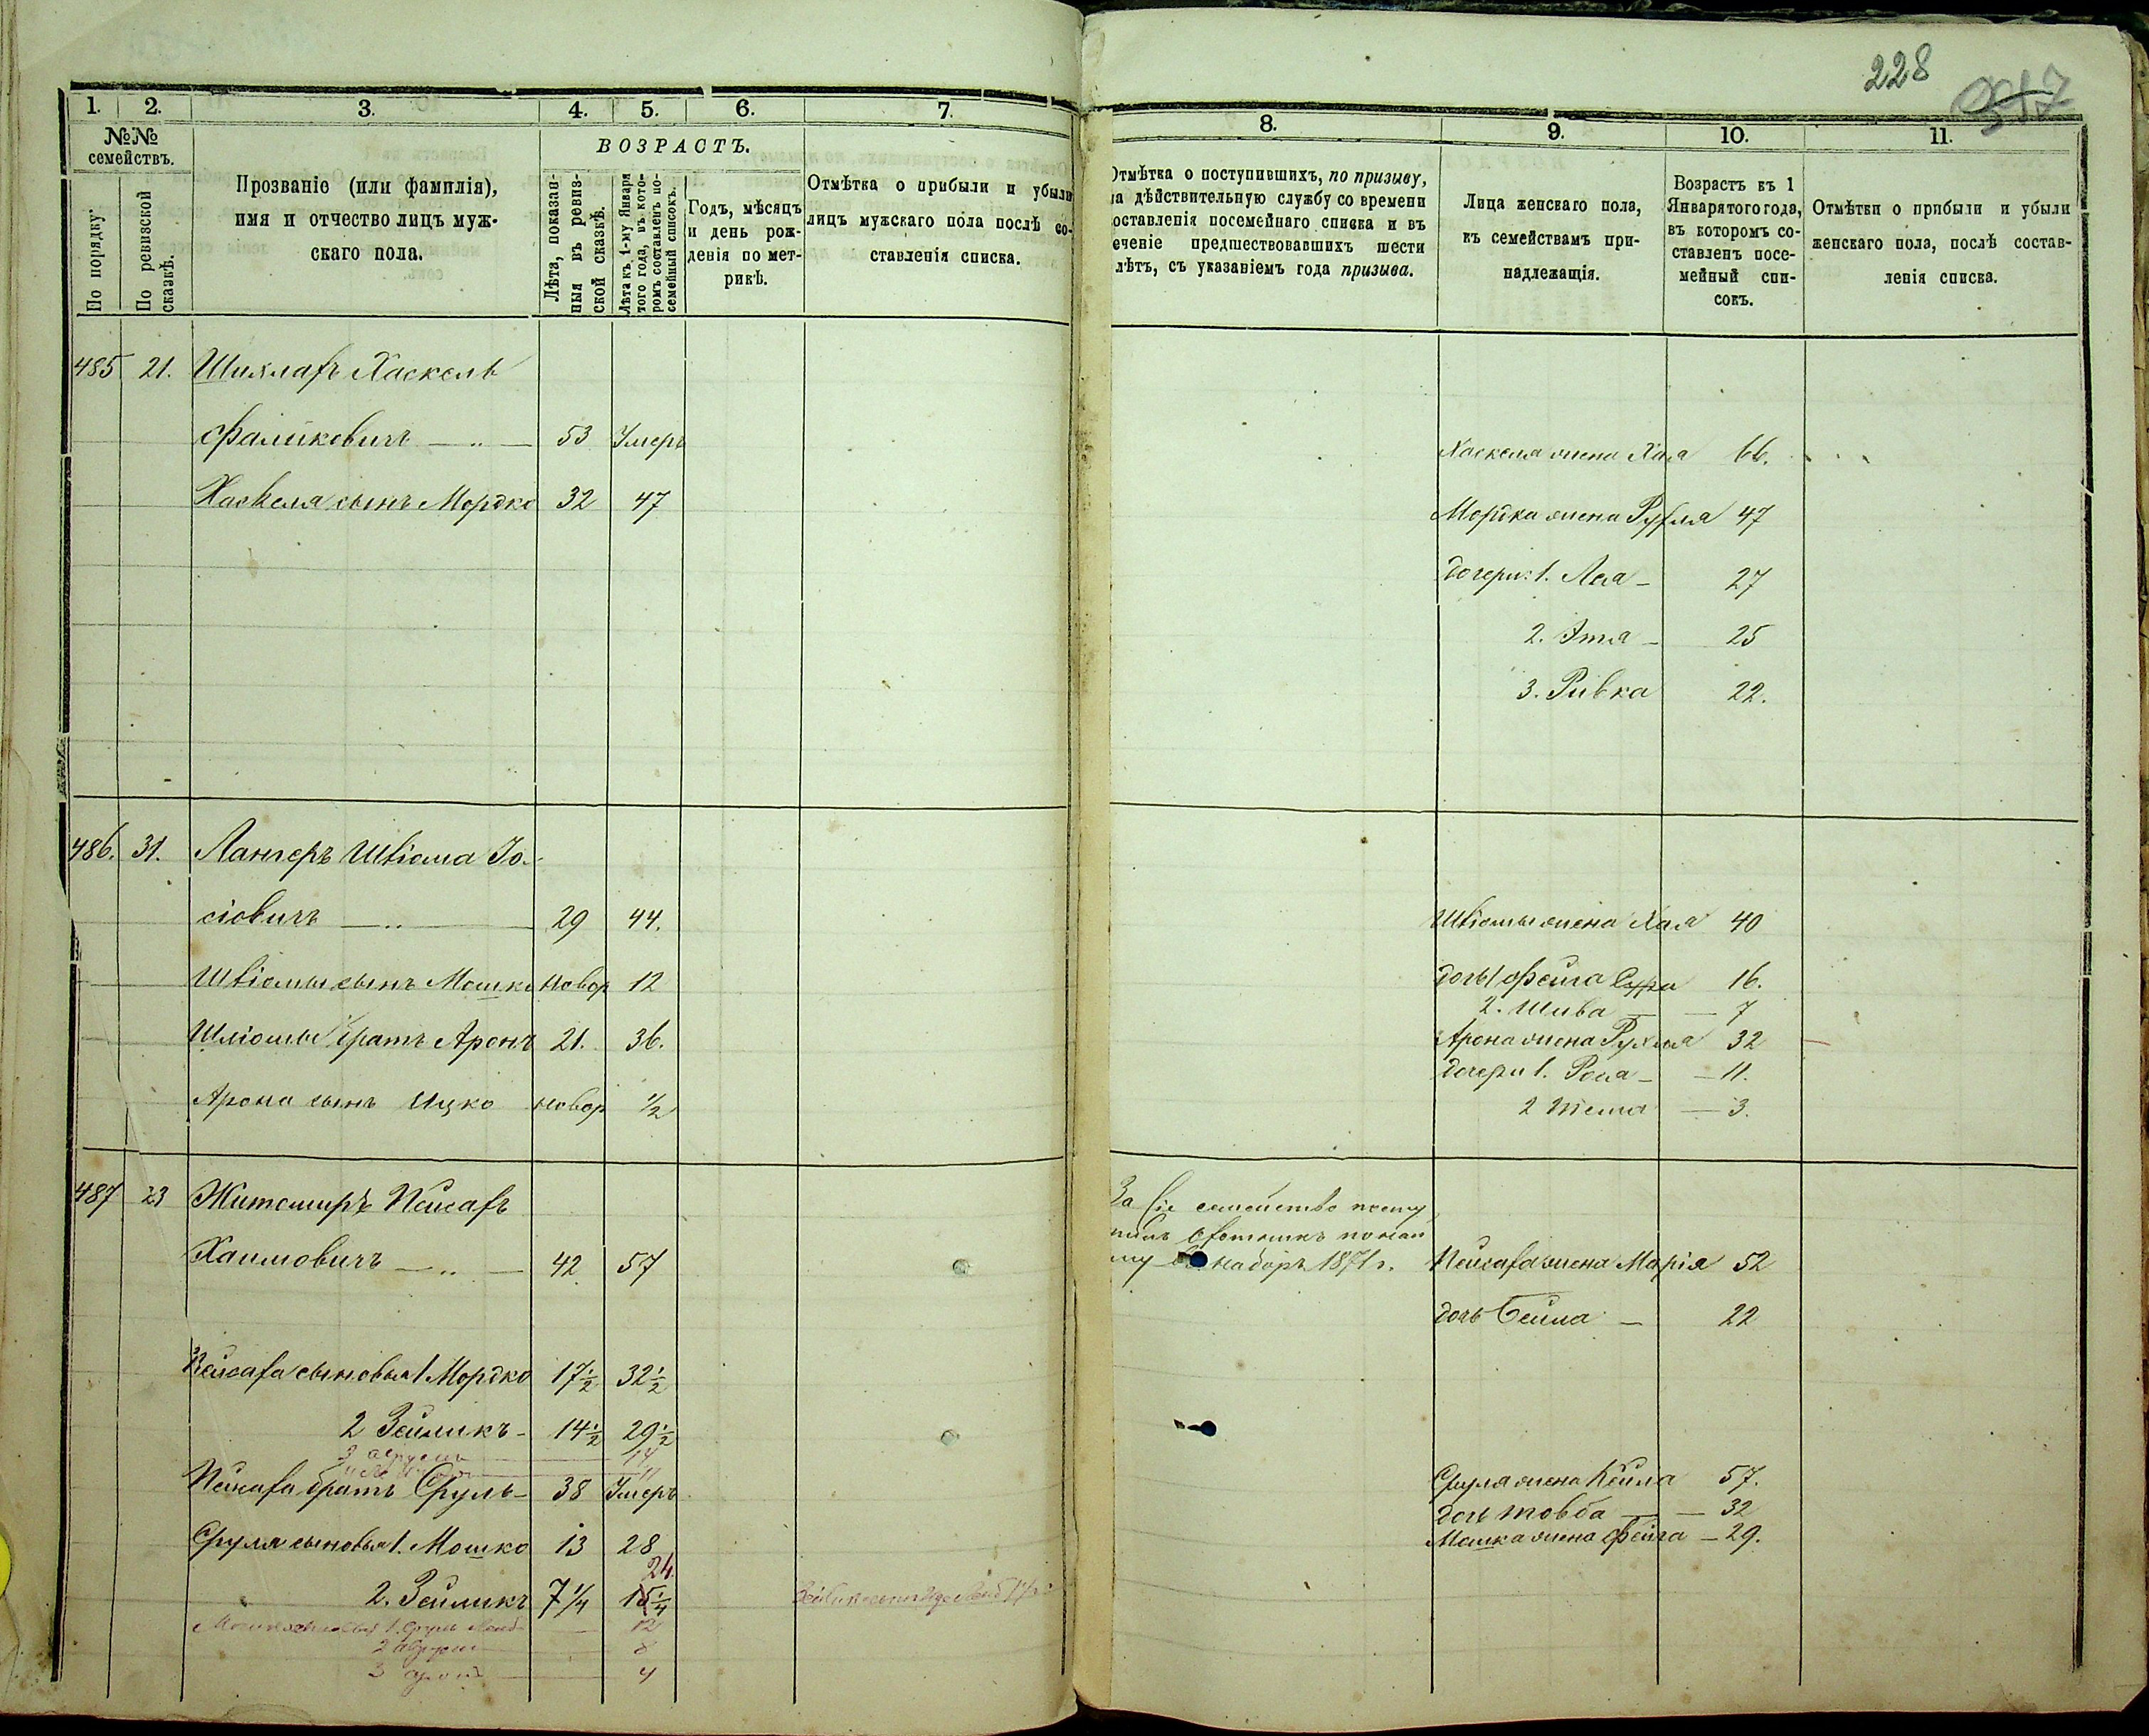 228
1. 2. 3. 4. 5. 6. 7.
№№ семействъ.
По порядку.
По ревизской сказкѣ.
Прозваніе (или фамилія),
имя и отчество лицъ муж-
скаго пола.
ВОЗРАСТЪ.
Лѣта, показан-
ныя въ ревиз-
ской сказкѣ.
Лѣта къ 1-му Января
того года, въ кото-
ромъ составленъ по-
семейный списокъ.
Годъ, мѣсяцъ
и день рож-
денія по мет-
рикѣ.
Отмѣтка о прибыли и убыли
лицъ мужскаго пола послѣ со-
ставленія списка.
485 21. Шихларъ Хаскель
Фаликовичъ 53 Умеръ
Хаскеля сынъ Мордко 32 47
486. 31. Лангеръ Шліома Іо-
сіовичъ 29 44.
Шліомы сынъ Мошко новор 12
Шліомы братъ Аронъ 21. 36.
Арона сынъ Ицко новор ½
487 23 Житомиръ Пейсахъ
Хаимовичъ 42 57
Пейсаха сыновья 1 Мордко 17½ 32½
2 Зейликъ 14½ 29½
3 14
11
Пейсаха братъ Сруль 38 Умеръ
Сруля сыновья 1. Мошко 13 28
24
2. Зейликъ 7¼ 15¼
1. Сруль 12
2 8
3 Аронъ 4
8. 9. 10. 11.
Отмѣтка о поступившихъ, по призыву,
на дѣйствительную службу со времени
составленія посемейнаго списка и въ
теченіе предшествовавшихъ шести
лѣтъ, съ указаніемъ года призыва.
Лица женскаго пола,
къ семействамъ при-
надлежащія.
Возрастъ къ 1
Января того года,
въ которомъ со-
ставленъ посе-
мейный спи-
сокъ.
Отмѣтки о прибыли и убыли
женскаго пола, послѣ состав-
ленія списка.
Хаскеля жена Хая 66.
Мордка жена Рухля 47
дочери: 1. Лея 27
2. Этля 25
3. Ривка 22.
Шліомы жена Хая 40
дочь 1 Фейга Сура 16.
2. Шива 7
Арона жена Рухля 32
дочери 1. Роза 11.
2 3.
За сіе семейство посту
пилъ охотникъ по най
му въ наборъ 1871 г.
Пейсаха жена Марія 52
дочь Бейла 22
Сруля жена Кейла 57.
дочь Товба 32
Мошка жена Фейга 29.